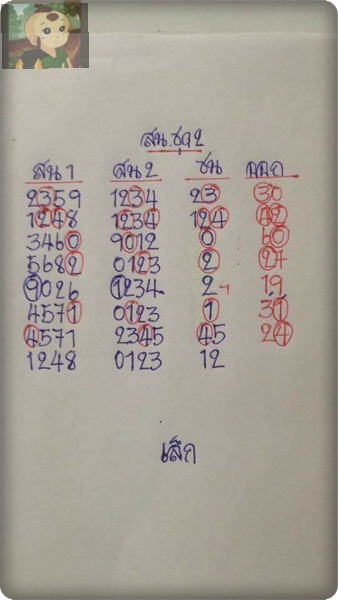 สน.ชุด 2
สน 1 สน 2 ชน ออก
2359 1234 23 30
1248 1234 124 42
3460 9012 0 60
5682 0123 2 27
9026 1234 2 19
4571 0123 1 31
4571 2345 45 24
1248 0123 12
เสือ